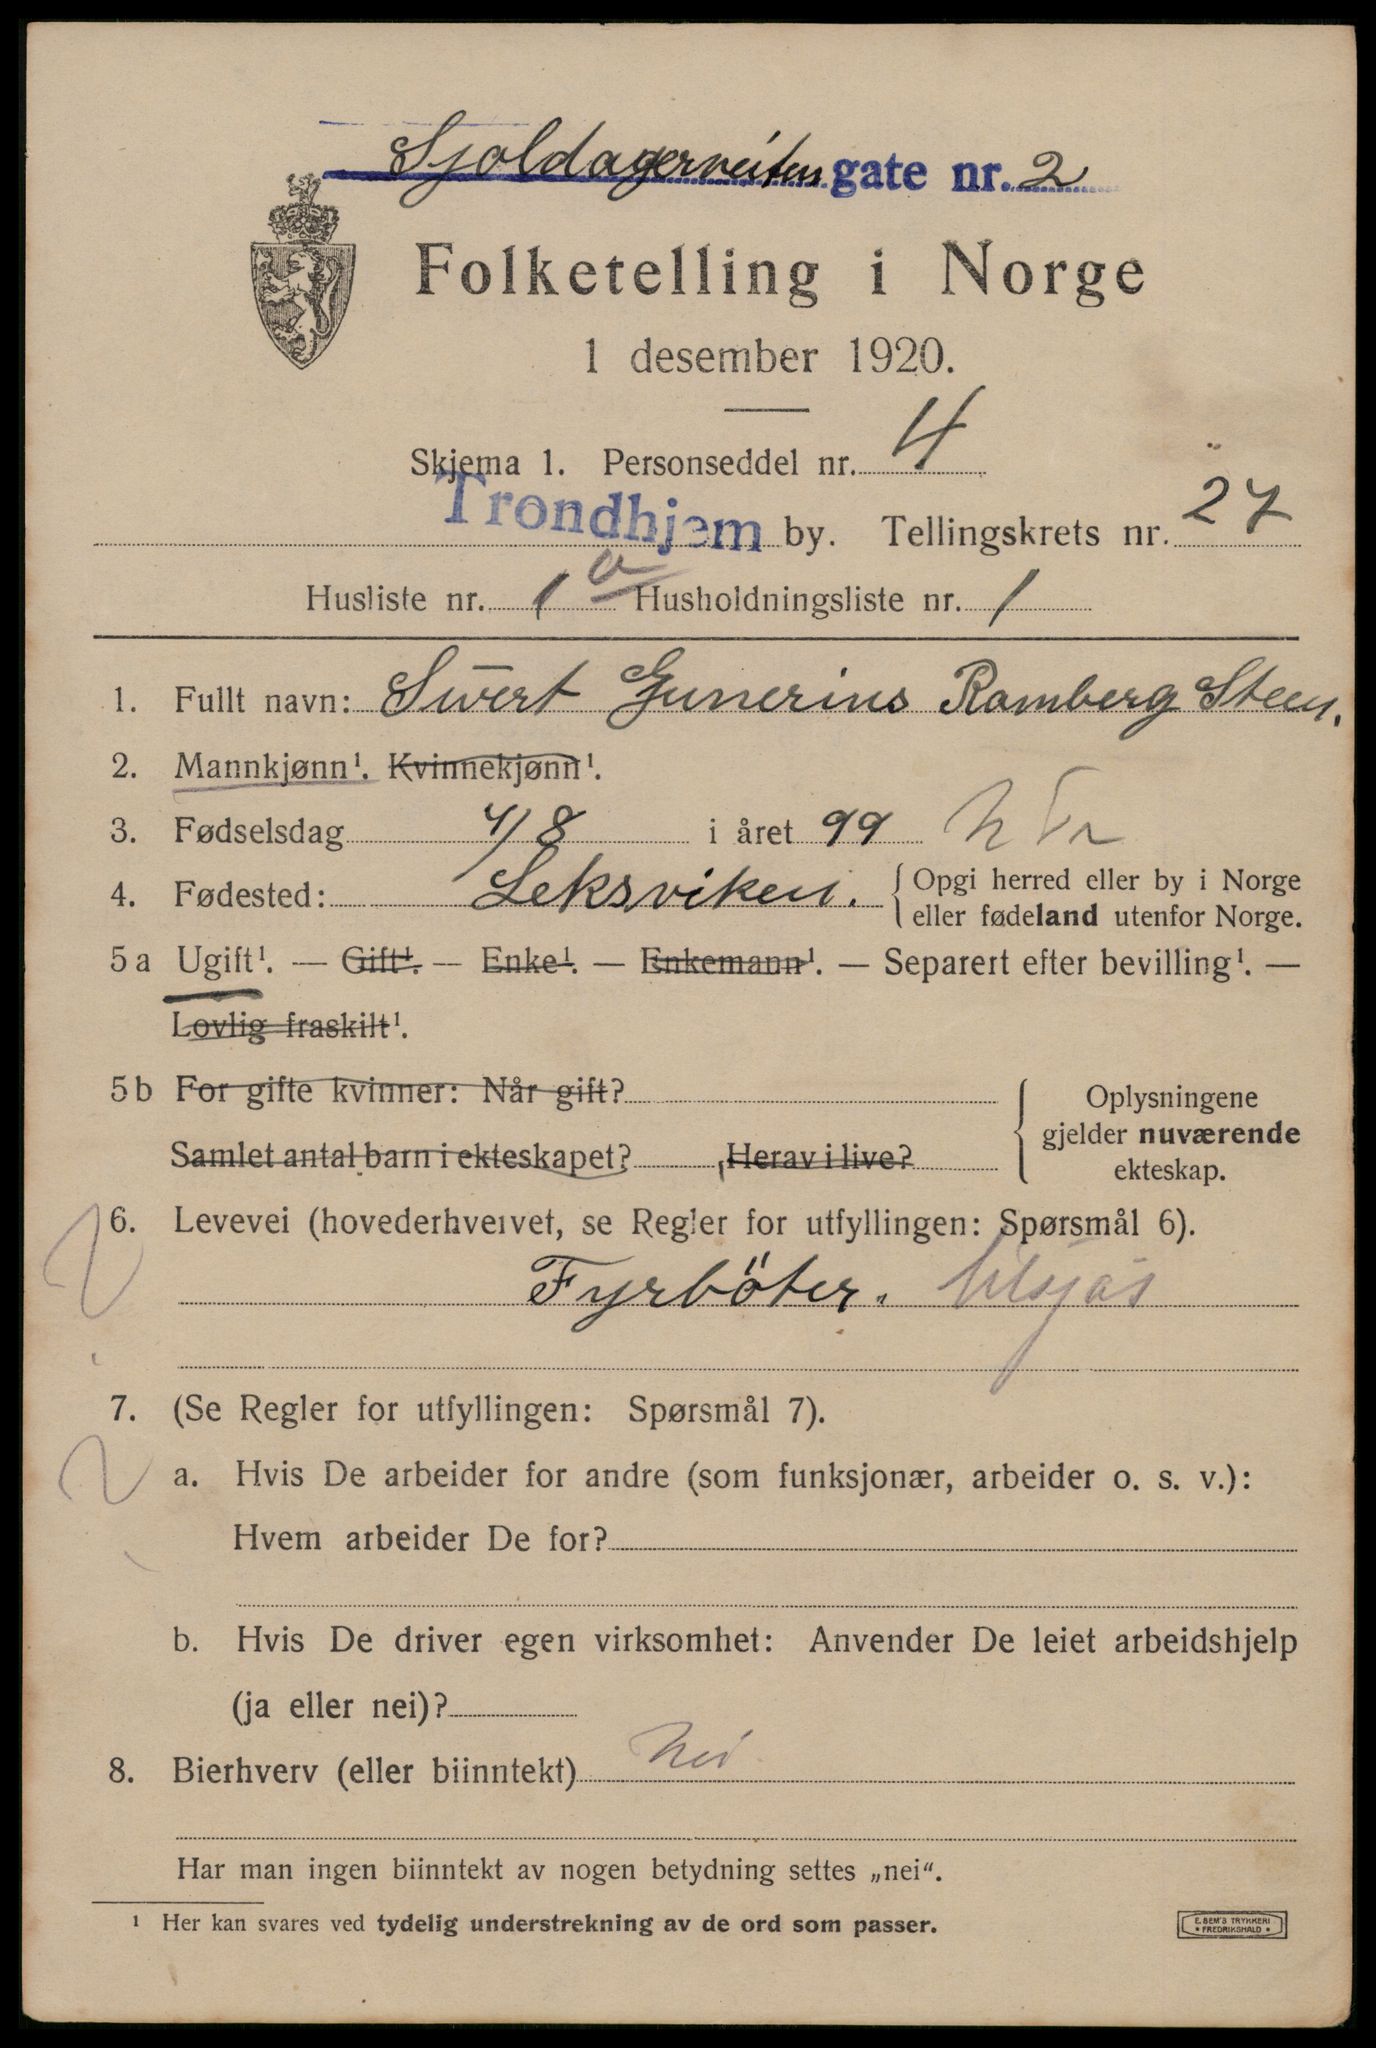 Sjoldagerveiten gate nr. 2
Folketelling i Norge
1 desember 1920.
Skjema 1. Personseddel nr. 4
Trondhjem by. Tellingskrets nr. 27
Husliste nr. 1 a Husholdningsliste nr. 1
1. Fullt navn: Sivert Gunerius Ramberg Steen.
2. Mannkjønn¹. Kvinnekjønn¹.
3. Fødselsdag 4/8 i året 99
4. Fødested: Leksviken. { Opgi herred eller by i Norge
eller fødeland utenfor Norge.
5 a Ugift¹. — Gift¹. — Enke¹. — Enkemann¹. — Separert efter bevilling¹. —
Lovlig fraskilt¹.
5 b For gifte kvinner: Når gift?
Samlet antal barn i ekteskapet? Herav i live?
{ Oplysningene
gjelder nuværende
ekteskap.
6. Levevei (hovederhvervet, se Regler for utfyllingen: Spørsmål 6).
Fyrböter. tilsjøs
7. (Se Regler for utfyllingen: Spørsmål 7).
a. Hvis De arbeider for andre (som funksjonær, arbeider o. s. v.):
Hvem arbeider De for?
b. Hvis De driver egen virksomhet: Anvender De leiet arbeidshjelp
(ja eller nei)?
8. Bierhverv (eller biinntekt) Nei
Har man ingen biinntekt av nogen betydning settes „nei“.
¹ Her kan svares ved tydelig understrekning av de ord som passer.
E. SEM'S TRYKKERI
* FREDRIKSHALD *